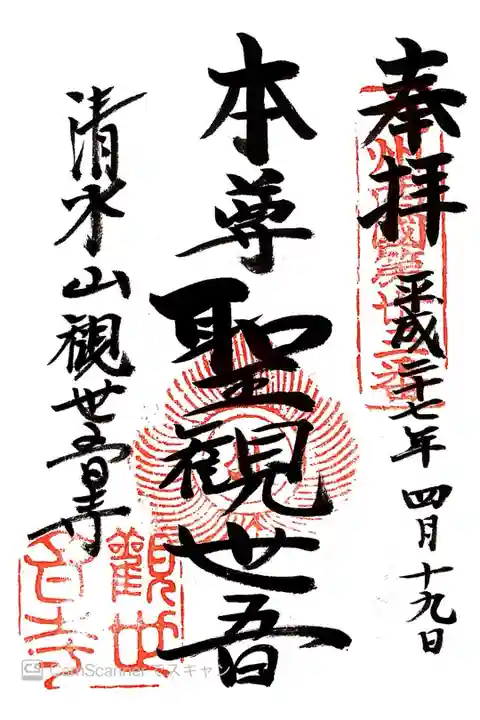 奉拝
平成二十七年 四月十九日
本尊 聖観世音
清水山観世音寺
觀世音寺
CamScannerでスキャン